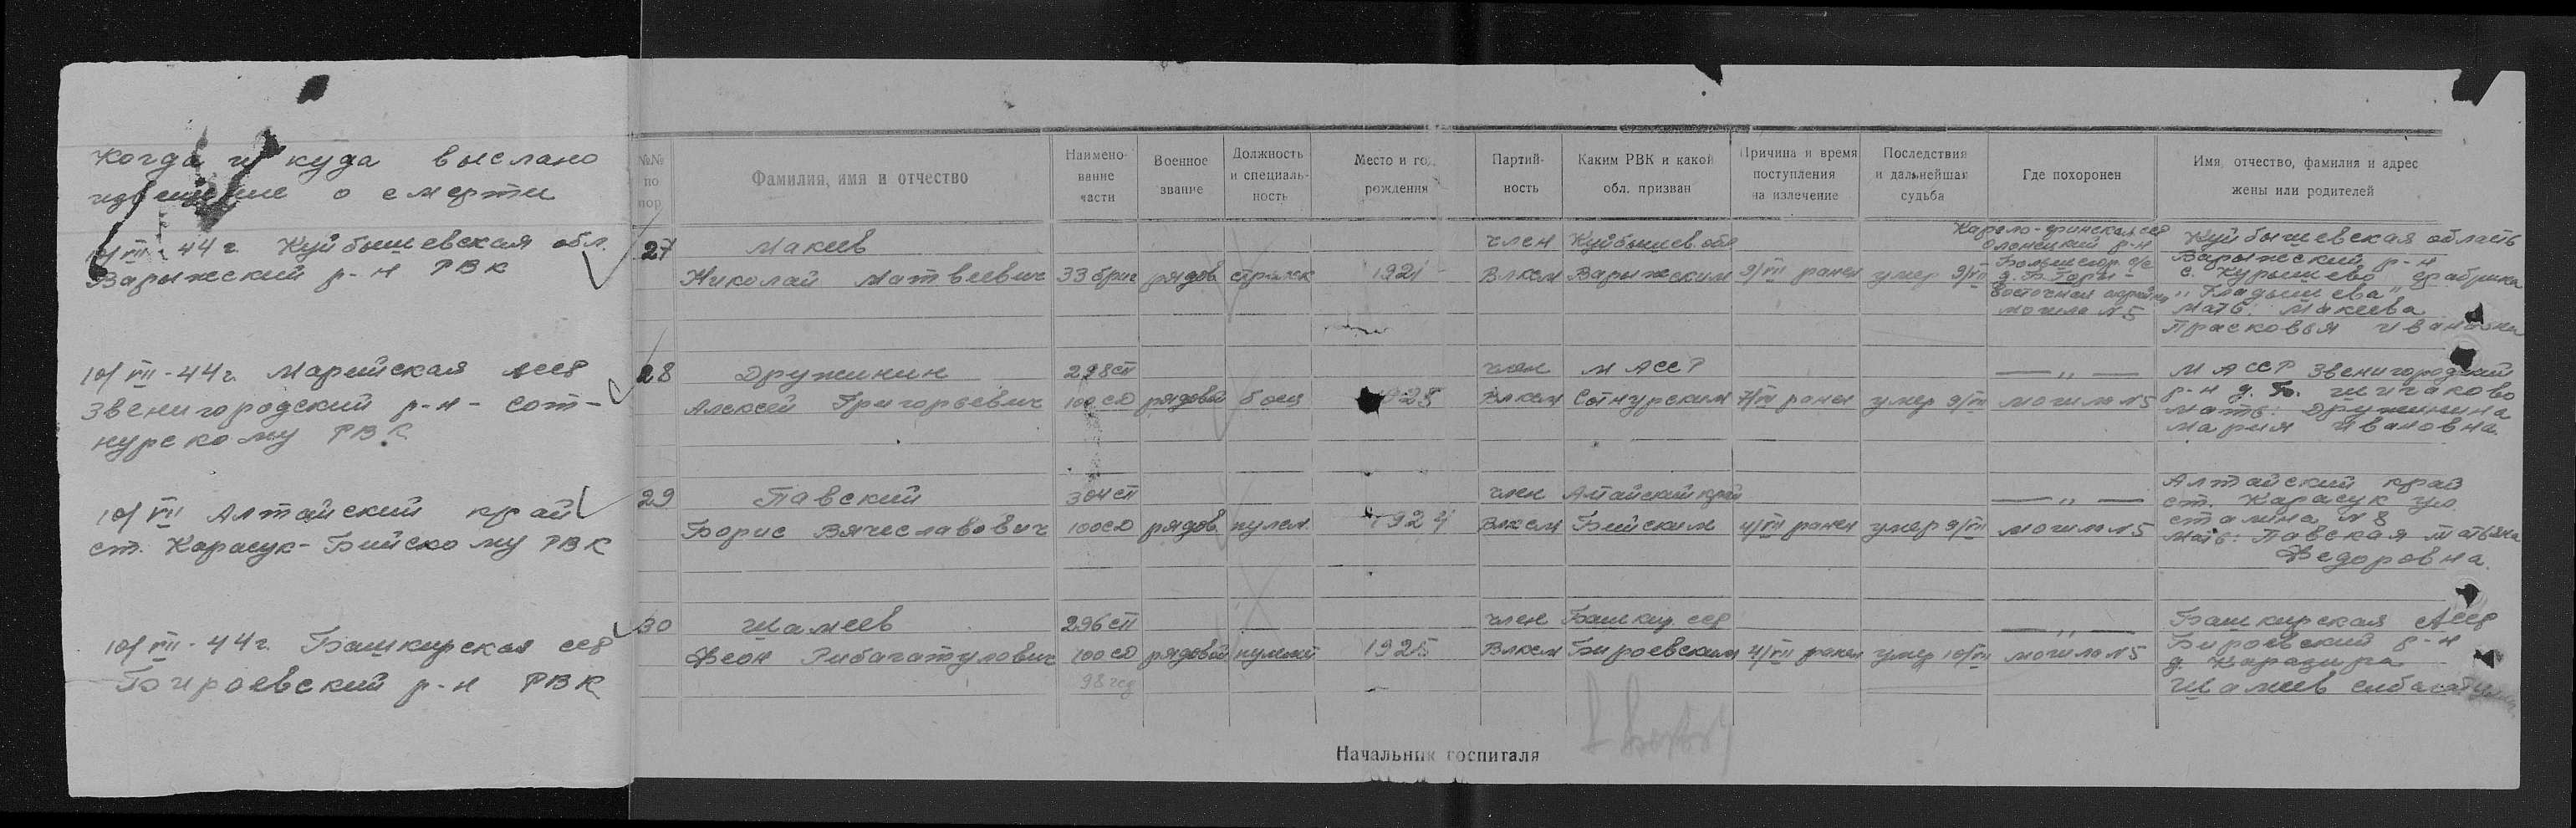 Когда и куда выслано
извещение о смерти
№№ по пор
Фамилия, имя и отчество
Наимено-вание части
Военное звание
Должность и специаль-ность
Место и год рождения
Партий-ность
Каким РВК и какой обл. призван
Причина и время поступления на излечение
Последствия и дальнейшая судьба
Где похоронен
Имя, отчество, фамилия и адрес жены или родителей
VII-44 г. Куйбышевская обл.
Варыжский р-н РВК
27
Макеев
Николай Матвеевич
33 бриг
рядов
стрелк
член
Влксм
Куйбышев. обл
Варыжским
9/VII ранен
умер 9/VII
Карело-финская сср
Олонецкий р-н
д. Б. Горы-
восточная окраина
могила №5
Куйбышевская область
Варыжский р-н
с. Курышево фабрика
"Гладышева"
мать: Макеева
Прасковья Ивановна
10/VII-44г. Марийская асср
Звенигородский р-н - Сот-
нурскому РВК
28
Дружинин
Алексей Григорьевич
298 сп
100 сд
рядовой
боец
1925
член
Влксм
М АССР
Сотнурским
7/VII ранен
умер 9/VII
— " —
могила №5
М АССР Звенигородский
р-н д. Б. Шигаково
мать: Дружинина
Мария Ивановна
10/VII Алтайский край
ст. Карасук-Бийскому РВК
29
Павский
Борис Вячеславович
304 сп
100 сд
рядов
пулем.
1924
член
Влксм
Алтайский край
Бийским
4/VII ранен
умер 9/VII
— " —
могила №5
Алтайский край
ст. Карасук ул.
Сталина №8
мать: Павская Татьяна
Федоровна
10/VII-44г. Башкирская сср
Бироевский р-н РВК
30
Шамеев
Феон Рибагатулович
296 сп
100 сд
98 гсд
рядовой
1925
член
Влксм
Башкир сср
Бироевским
4/VII ранен
умер 10/VII
— " —
могила №5
Башкирская Асср
Бироевский р-н
Шамеев
Начальник госпиталя